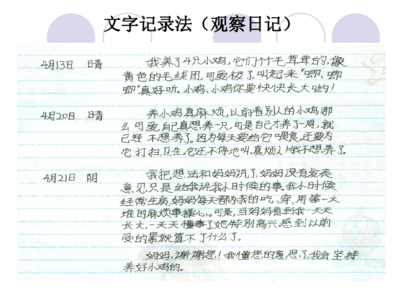 文字记录法（观察日记）
4月13日 日晴 我养了4只小鸡,它们个个毛茸茸的,像
黄色的毛线团,可爱极了,叫起来"唧、唧
唧"真好听。小鸡、小鸡你要快快长大哟!
4月20日 日晴 养小鸡真麻烦,以前看别人的小鸡那
么可爱,自己真想养一只,可是自己才养了一周,就
已经不想养了。因为每天要给它喂食,还要为
它打扫卫生,它还不停地叫,真烦人!我不想养了。
4月21日 阴 我把想法和妈妈说了,妈妈没有发表
意见,只是给我说我小时候的事,我小时候
经常生病,妈妈每天都为我的吃、穿、用等一大
堆的麻烦事操心。可是,当妈妈看到我一天天
长大,一天天懂事了她特别高兴,感到以前
受的累就算不了什么了。
妈妈,谢谢您!我懂您的意思了,我会坚持
养好小鸡的。